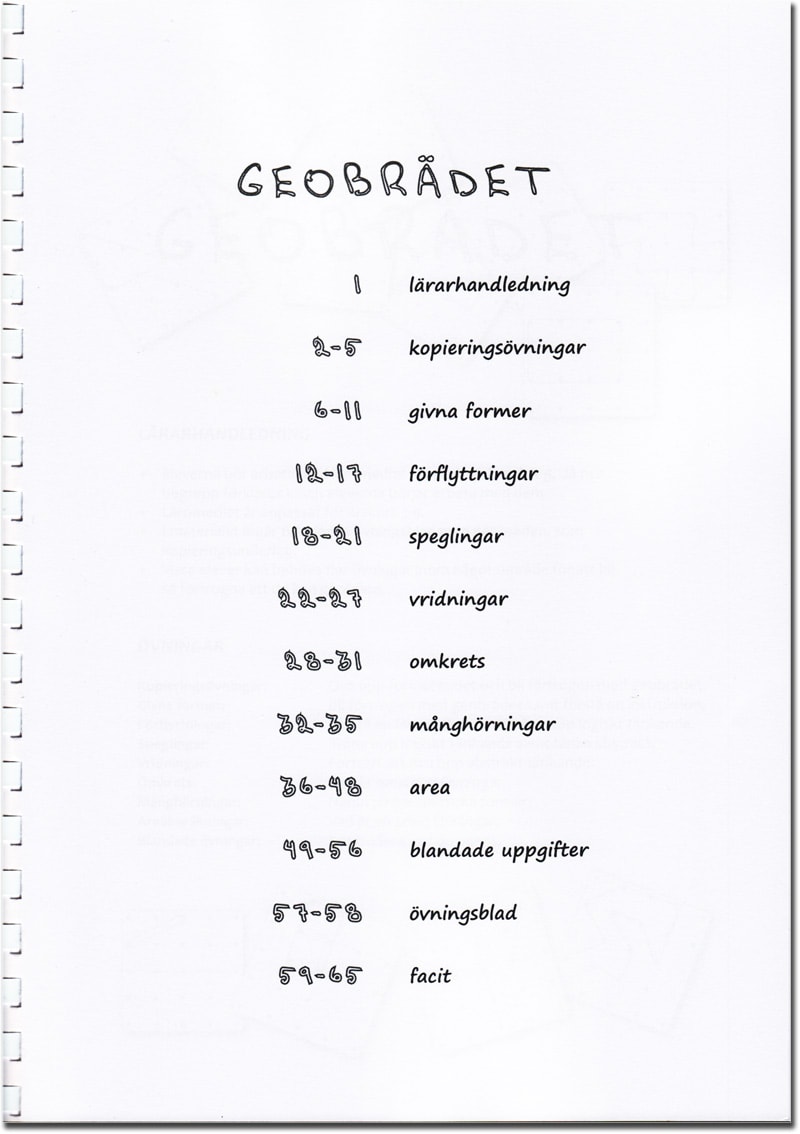 GEOBRÄDET
1 lärarhandledning
2-5 kopieringsövningar
6-11 givna former
12-17 förflyttningar
18-21 speglingar
22-27 vridningar
28-31 omkrets
32-35 månghörningar
36-48 area
49-56 blandade uppgifter
57-58 övningsblad
59-65 facit